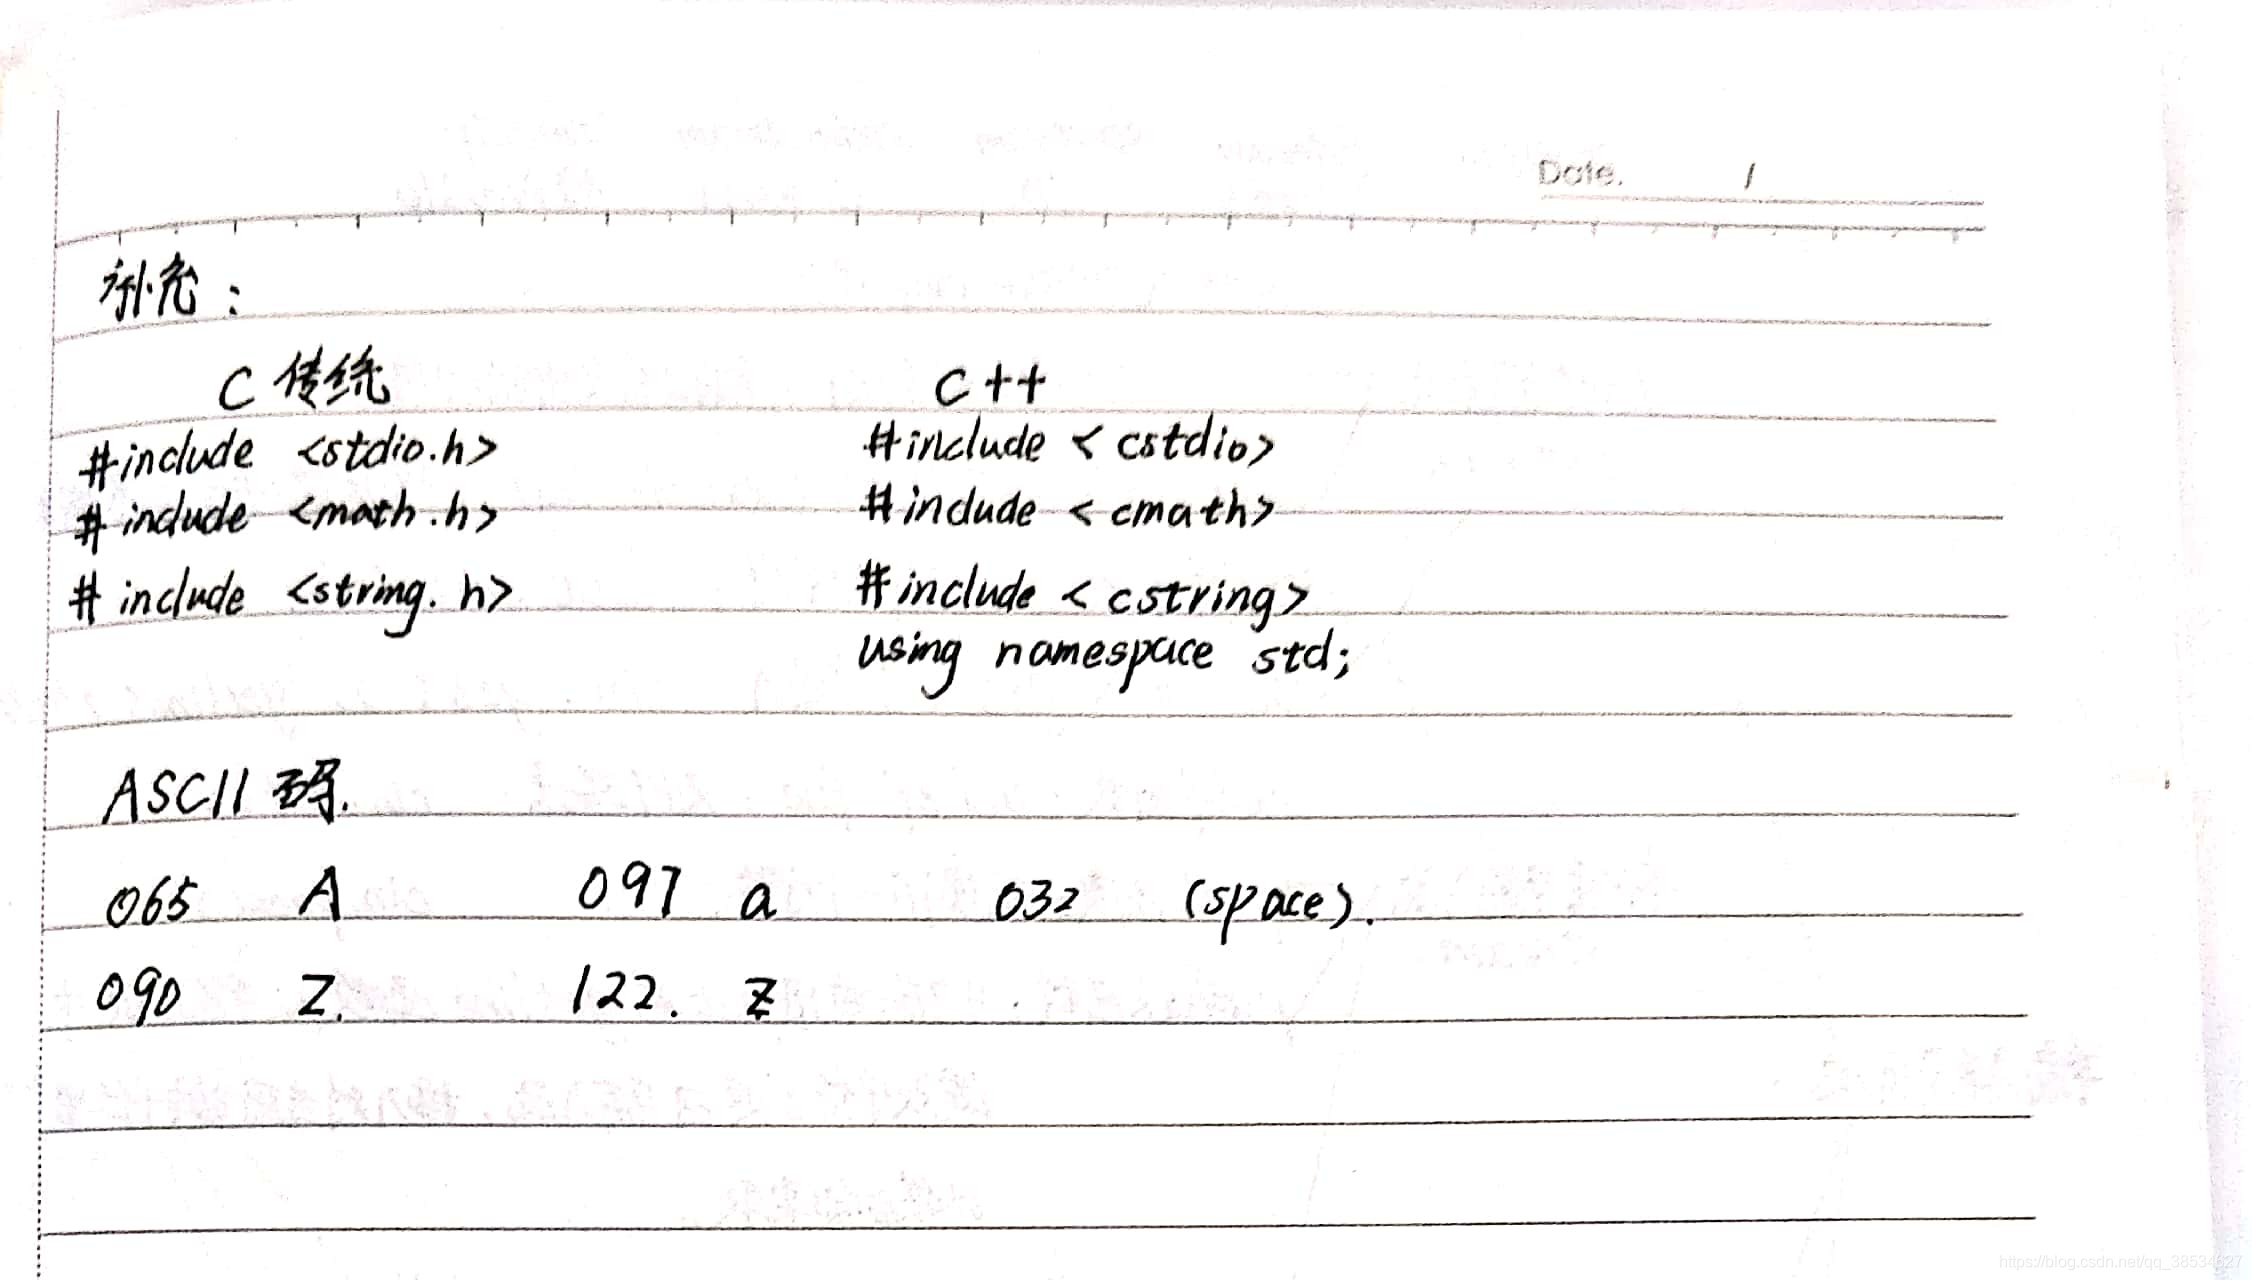 Date. /
补充：
C 传统 C++
#include <stdio.h> #include <cstdio>
#include <math.h> #include <cmath>
#include <string.h> #include <cstring>
using namespace std;
ASCII 码.
065 A 097 a 032 (space).
090 Z. 122. z
https://blog.csdn.net/qq_38534627